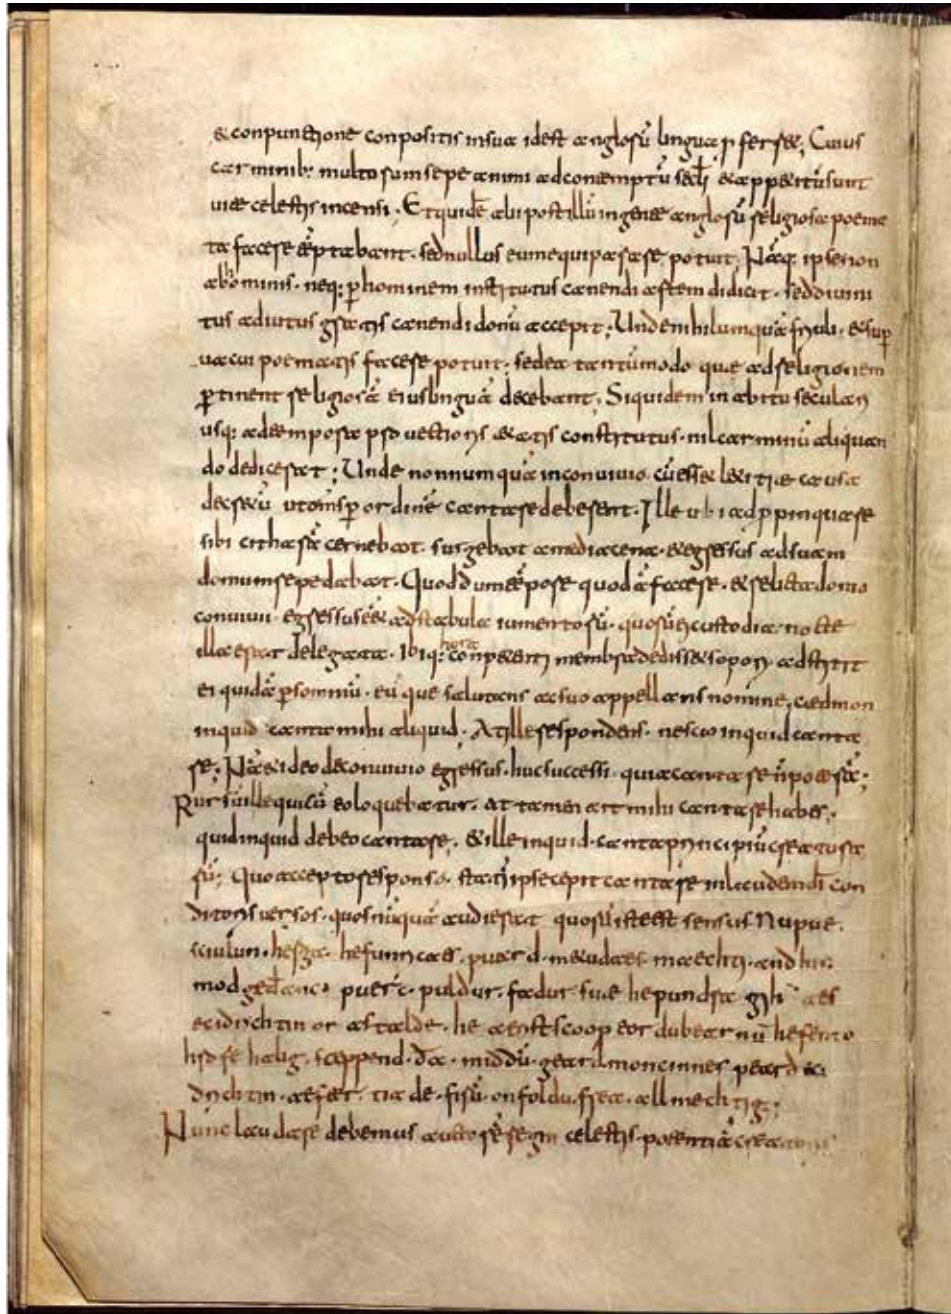 & conpunctione conpositis in sua id est anglosū lingua pferret; Cuius
carminib; multorum sepe animi ad contemptū sc̄li & appetitū sunt
uitae celestis incensi. Et quidē alii post illū in gente anglorū religiosa poema
ta facere tēptabant. sed nullus eum equiparare potuit; Nāq; ipse non
ab hominis. neq; ꝑ hominem institutus canendi artem didicit. sed diuini
tus adiutus gratis canendi donū accepit; Unde nihil umquā friuoli. & sup
uacui poematis facere potuit; sed ea tantū modo que ad religionem
ꝑtinent religiosā eius linguā decebant; Siquidem in abitu seculari
usq; ad tempora prouectioris etatis constitutus. nil carminū aliquan
do dedicerat; Unde nonnumquā in conuiuio cū esset letitiae causa
decretū ut om̄s ꝑ ordinē cantare deberent. Ille ubi adppinquare
sibi citharā cernebat. surgebat a media cena. & egressus ad suam
domum repedabat. Quod dum tēpore quodā faceret. & relicta domo
conuiuii egressus eēt ad stabula iumentorū. quorū ei custodia nocte
illa erat delegata. Ibiq; hora conpetenti membra dedisset sopori. adstitit
ei quidā ꝑ somnū. eū que salutans ac suo appellans nomine; cædmon
inquid canta mihi aliquid. At ille respondens. nescio inquid canta
re; Nā et ideo de conuiuio egressus. huc successi. quia cantare n̄ poterā;
Rursū ille qui cū eo loquebatur. at tamen ait mihi cantare habes;
quid inquid debeo cantare. & ille inquid. canta principiū creatura
rū; Quo accepto responso. statī ipse cepit cantare in laudem dī con
ditoris uersos. quos nūquā audierat quorū iste est sensus Nu pue
sciulun. herga. hefunricaes. puard. metudaes maechti. and his
modgedanc. puerc. puldur. fadur. sue he pundra gihuaes
eci drichtin or astalde. he aerist scoop eordu bearnū hefen to
hrofe halig. sceppend. ða. middū. geard. moncinnes peard eci
drichtin. aefter. tiade. firū. on foldu. frea. allmechtig;
Nunc laudare debemus auctorē regni celestis. potentiā creatoris